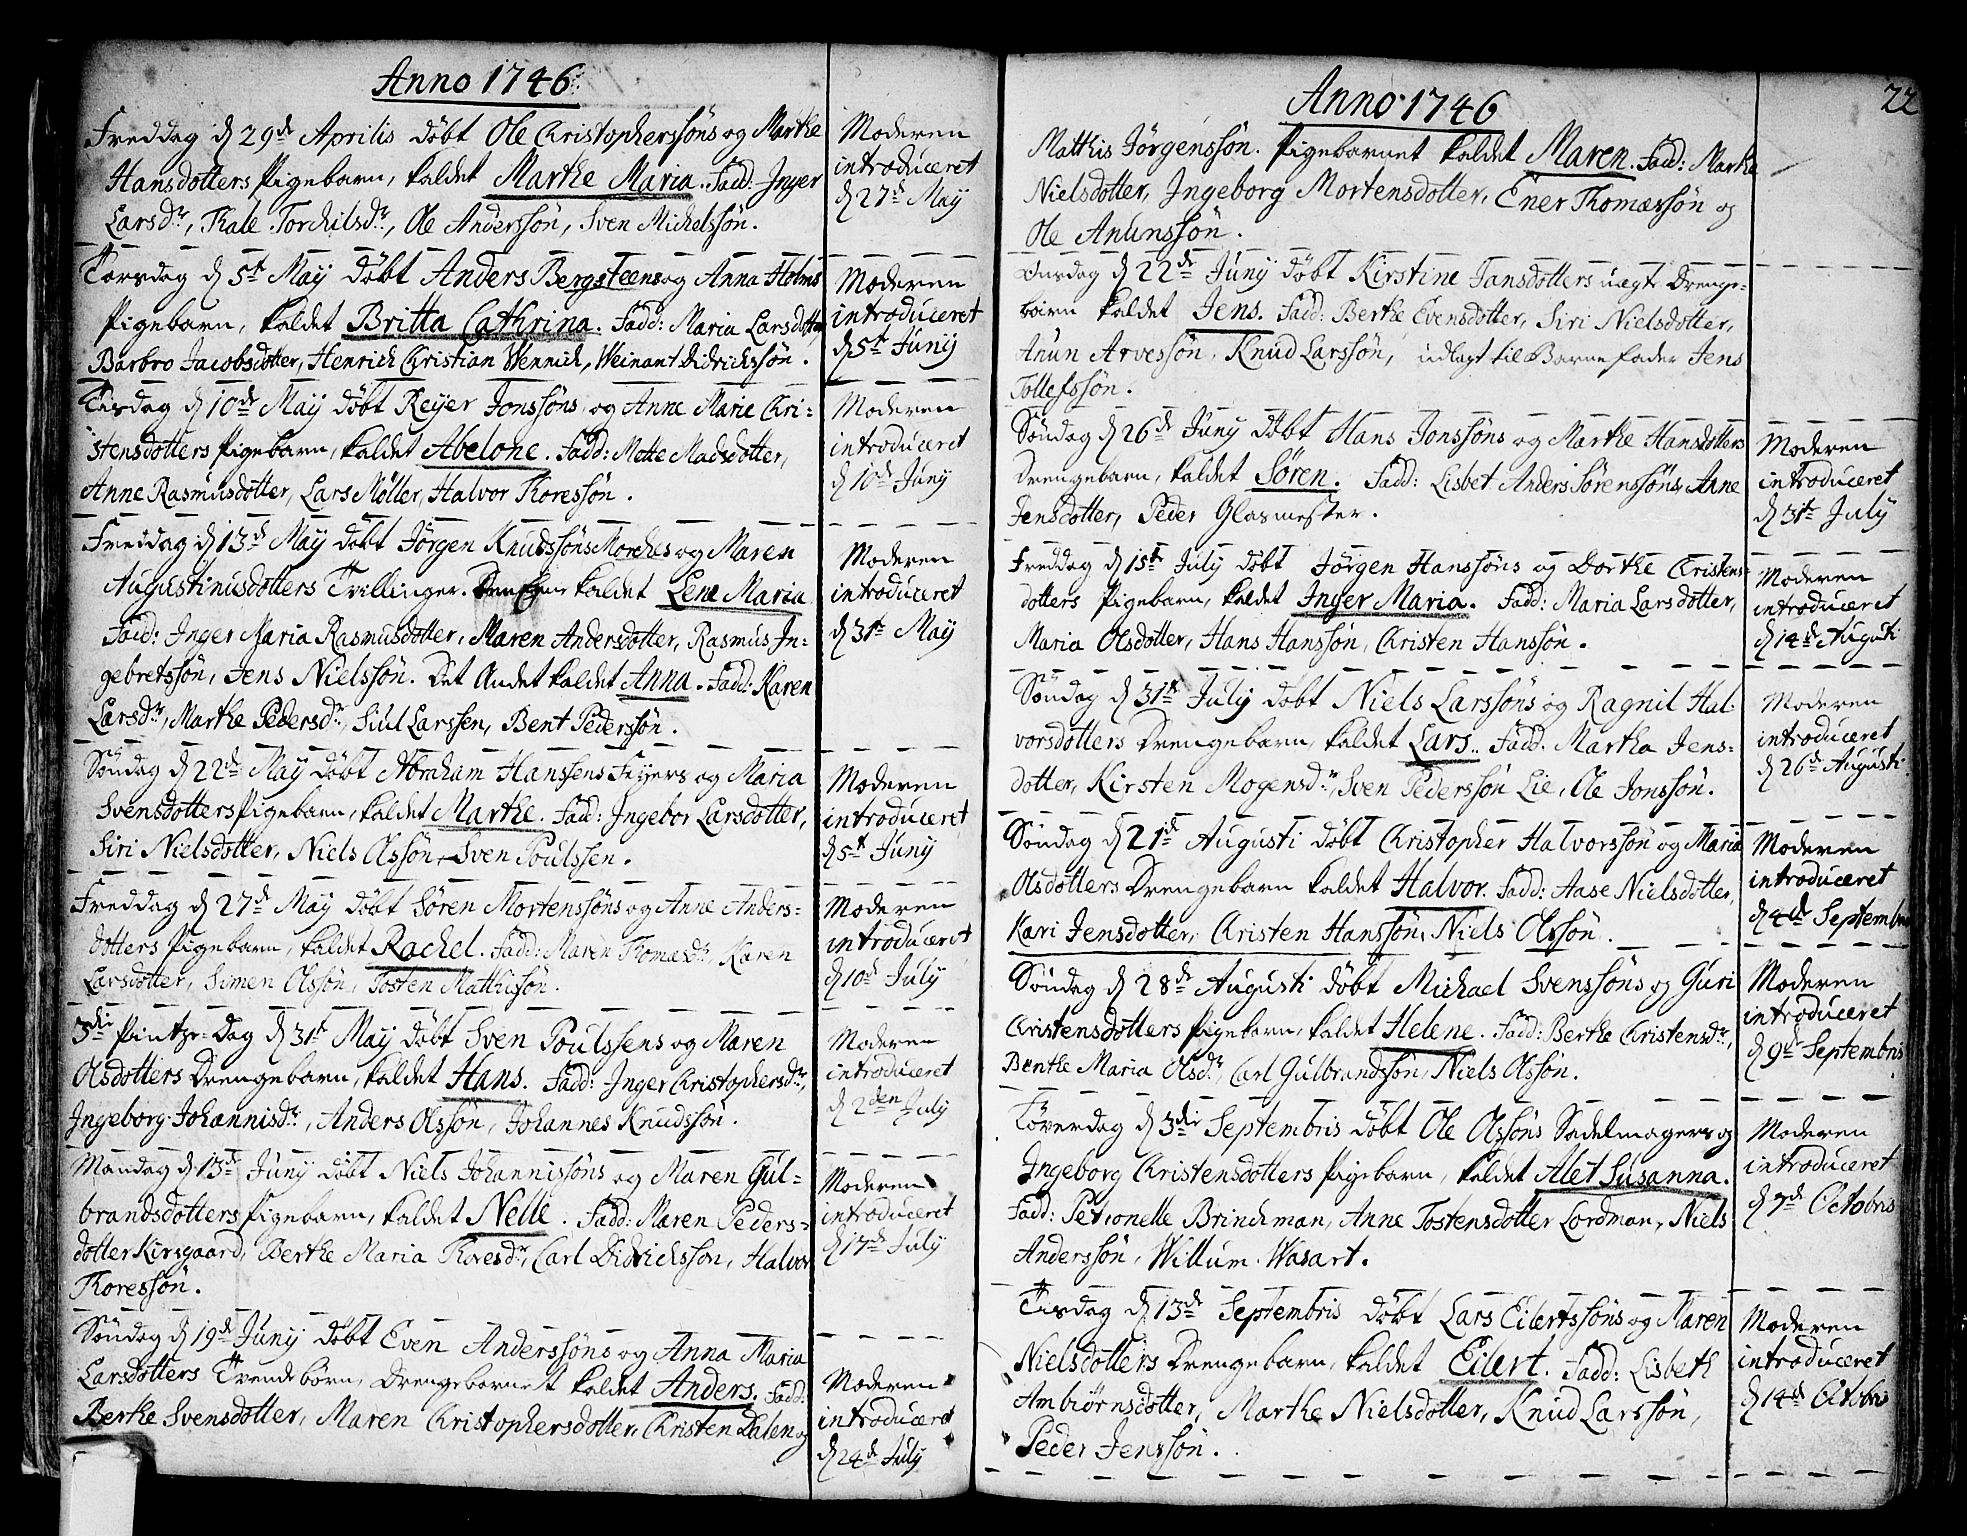 Anno 1746
Freddag d 29de Aprilis døbt Ole Christopherssøns og Marthe
Hansdotters Pigebarn, kaldet Marthe Maria. Fadd: Inger
Larsdr, Kale Torchilsdr, Ole Anderssøn, Sven Michelssøn.
Moderen
introduceret
d 27de May
Torsdag d 5te May døbt Anders Bergsteens og Anna Holms
Pigebarn, kaldet Britta Cathrina. Fadd: Maria Larsdotter
Barbro Jacobsdotter, Henrich Christian Wennich, Weinant Didrichssøn.
Moderen
introduceret
d 5te Juny
Tisdag d 10de May døbt Reyer Jonssøns og Anne Marie Chri-
stensdotters Pigebarn, kaldet Abelone. Fadd: Mette Madsdotter,
Anne Rasmusdotter, Lars Møller, Halvor Thoressøn.
Moderen
introduceret
d 10de Juny
Freddag d 13de May døbt Jørgen Knudssøns Morches og Maren
Augustinusdotters Tvillinger. kaldet Lene Maria
Fadd: Inger Maria Rasmusdotter, Maren Andersdotter, Rasmus In-
gebretssøn, Jens Nielssøn. Det Andet kaldet Anna. Fadd: Karen
Larsdr, Marthe Pedersdr, Siul Larssen, Bent Pederssøn.
Moderen
introduceret
d 31te May
Søndag d 22de May døbt Abraham Hanssens Feyers og Maria
Svensdotters Pigebarn, kaldet Marthe. Fadd: Ingebor Larsdotter,
Siri Nielsdotter, Niels Olssøn, Sven Poulssen.
Moderen
introduceret
d 5te Juny
Freddag d 27de May døbt Søren Mortenssøns og Anne Anders-
dotters Pigebarn, kaldet Rachel. Fadd: Maren Thomasdr, Karen
Larsdotter, Simen Olssøn, Tosten Mathissøn.
Moderen
introduceret
d 10de July
3die Pintze-Dag d 31te May døbt Sven Poulssens og Maren
Olsdotters Drengebarn, kaldet Hans. Fadd: Inger Christophersdr,
Ingeborg Johannisdr, Anders Olssøn, Johannes Knudssøn.
Moderen
introduceret
d 2den July
Mandag d 13de Juny døbt Niels Johannissøns og Maren Gul-
brandsdotters Pigebarn, kaldet Nelle. Fadd: Maren Peders-
dotter Kirsgaard, Berthe Maria Thoresdr, Carl Didrichssøn, Halvor
Thoressøn.
Moderen
introduceret
d 17de July
Søndag d 19de Juny døbt Even Anderssøns og Anna Maria
Larsdotters Tvende børn, Drengebarnet kaldet Anders. Fadd:
Berthe Svensdotter, Maren Christophersdotter, Christen Dalen og
Moderen
introduceret
d 24de July
22
Anno 1746
Matthis Jørgenssøn. Pigebarnet kaldet Maren. Fadd: Marthe
Nielsdotter, Ingeborg Mortensdotter, Ener Thomæssøn og
Ole Anunssøn.
Onsdag d 22de Juny døbt Kirstine Jansdotters uægte Drenge-
barn kaldet Jens. Fadd: Berthe Evensdotter, Siri Nielsdotter,
Anun Arvessøn, Knud Larssøn, udlagt til Barne fader Jens
Tollefssøn.
Søndag d 26de Juny døbt Hans Jonssøns og Marthe Hansdotters
Drengebarn, kaldet Søren. Fadd: Lisbet Anders Sørenssøns, Anne
Jensdotter, Peder Glasmester.
Moderen
introduceret
d 31te July
Freddag d 15te July døbt Jørgen Hanssøns og Dorthe Christens-
dotters Pigebarn, kaldet Inger Maria. Fadd: Maria Larsdotter,
Maria Olsdotter, Hans Hanssøn, Christen Hanssøn.
Moderen
introduceret
d 14de Augusti
Søndag d 31te July døbt Niels Larssøns og Ragnil Hal-
vorsdotters Drengebarn, kaldet Lars. Fadd. Martha Jens-
dotter, Kirsten Mogensdr, Sven Pederssøn Lie, Ole Jonssøn.
Moderen
introduceret
d 26de Augusti
Søndag d 21de Augusti døbt Christopher Halvorssøn og Maria
Olsdotters Drengebarn kaldet Halvor. Fadd: Aase Nielsdotter,
Kari Jensdotter, Christen Hanssøn, Niels Olssøn.
Moderen
introduceret
d 4de Septembris
Søndag d 28de Augusti døbt Michael Svenssøns og Guri
Christensdotters Pigebarn, kaldet Helene. Fadd: Berthe Christensdr,
Benthe Maria Olsdr, Carl Gulbrandssøn, Niels Olssøn.
Moderen
introduceret
d 9de Septembris
Løverdag d 3die Septembris døbt Ole Olssøns Sadelmagers og
Ingeborg Christensdotters Pigebarn, kaldet Alet Susanna.
Fadd: Petronelle Brinchman, Anne Tostensdotter Lordman, Niels
Anderssøn, Willum Wasart.
Moderen
introduceret
d 7de Octobris
Tisdag d 13de Septembris døbt Lars Eilertssøns og Maren
Nielsdotters Drengebarn, kaldet Eilert. Fadd: Lisbeth
Ambiørnsdotter, Marthe Nielsdotter, Knud Larssøn,
Peder Jenssøn.
Moderen
introduceret
d 14de Octobris